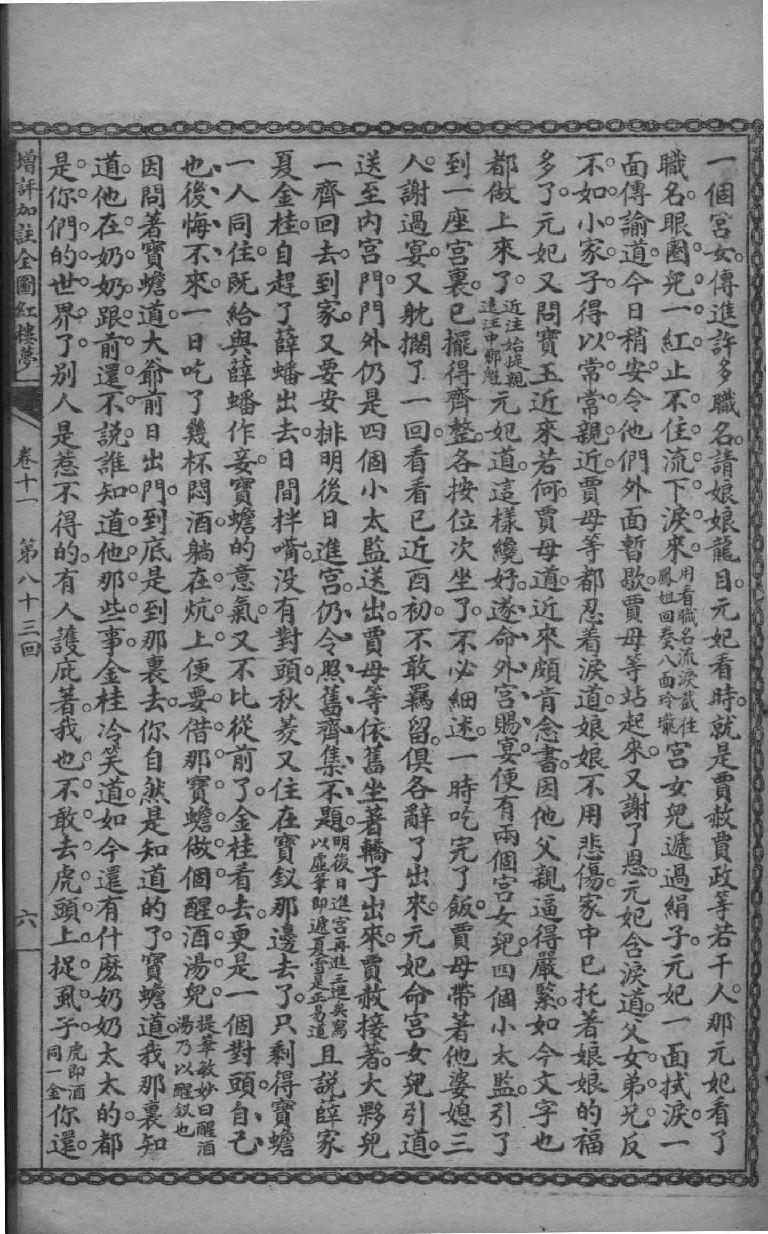 一個宮女傳進許多職名請娘娘龍目元妃看時就是賈赦賈政等若干人那元妃看了
職名眼圈兒一紅止不住流下淚來用看職名流淚截住鳳姐回奏八面玲瓏宮女兒遞過絹子元妃一面拭淚一
面傳諭道今日稍安令他們外面暫歇賈母等站起來又謝了恩元妃含淚道父女弟兄反
不如小家子得以常常親近賈母等都忍着淚道娘娘不用悲傷家中已托著娘娘的福
多了元妃又問寶玉近來若何賈母道近來頗肯念書因他父親逼得嚴緊如今文字也
都做上來了近注始提親遠注中鄉魁元妃道這樣纔好遂命外宮賜宴便有兩個宮女兒四個小太監引了
到一座宮裏已擺得齊整各按位次坐了不必細述一時吃完了飯賈母帶著他婆媳三
人謝過宴又躭擱了一回看看已近酉初不敢羈留俱各辭了出來元妃命宮女兒引道
送至內宮門門外仍是四個小太監送出賈母等依舊坐著轎子出來賈赦接著大夥兒
一齊回去到家又要安排明後日進宮仍令照舊齊集不題明後日進宮再進三進矣寫以虛筆即遞夏雪是正易道且說薛家
夏金桂自趕了薛蟠出去日間拌嘴没有對頭秋菱又住在寶釵那邊去了只剩得寶蟾
一人同住既給與薛蟠作妾寶蟾的意氣又不比從前了金桂看去更是一個對頭自己
也後悔不來一日吃了幾杯悶酒躺在炕上便要借那寶蟾做個醒酒湯兒提筆敏妙曰醒酒湯乃以醒釵也
因問著寶蟾道大爺前日出門到底是到那裏去你自然是知道的了寶蟾道我那裏知
道他在奶奶跟前還不說誰知道他那些事金桂冷笑道如今還有什麽奶奶太太的都
是你們的世界了别人是惹不得的有人護庇著我也不敢去虎頭上捉虱子虎即酒同一金你還
增評加註全圖紅樓夢 卷十一 第八十三回 六